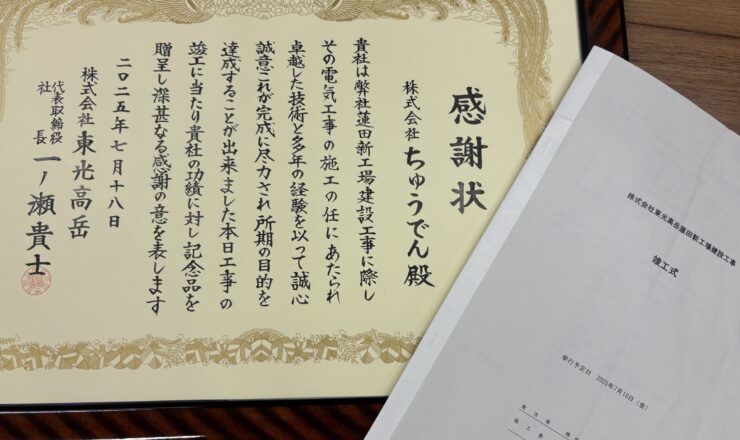 感謝状
株式会社 ちゅうでん 殿
貴社は弊社蓮田新工場建設工事に際し
その電気工事の施工の任にあたられ
卓越した技術と多年の経験を以って誠心
誠意これが完成に尽力され所期の目的を
達成することが出来ました本日工事の
竣工に当たり貴社の功績に対し記念品を
贈呈し深甚なる感謝の意を表します
二〇二五年七月十八日
株式会社 東光高岳
代表取締役
社長 一ノ瀬貴士
株式会社東光高岳蓮田新工場建設工事
竣工式
挙行予定日 2025年7月18日（金）
発注者 株
施工者